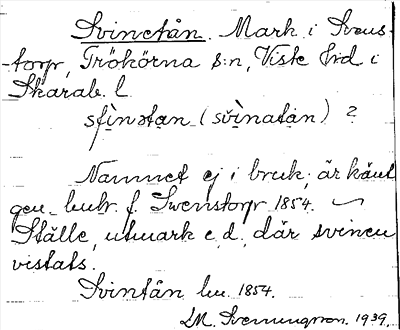 Svinetån. Mark i Svens-
-torp, Trökörna s:n, Viste hd i
Skarab. l.
sfìnətan (svìnatan) ?
Namnet ej i bruk; är känt
gen. lmhr. f. Swenstorp 1854.
Ställe, utmark e. d., där svinen
vistats.
Svintån lm. 1854.
LM. Svenungsson. 1939.